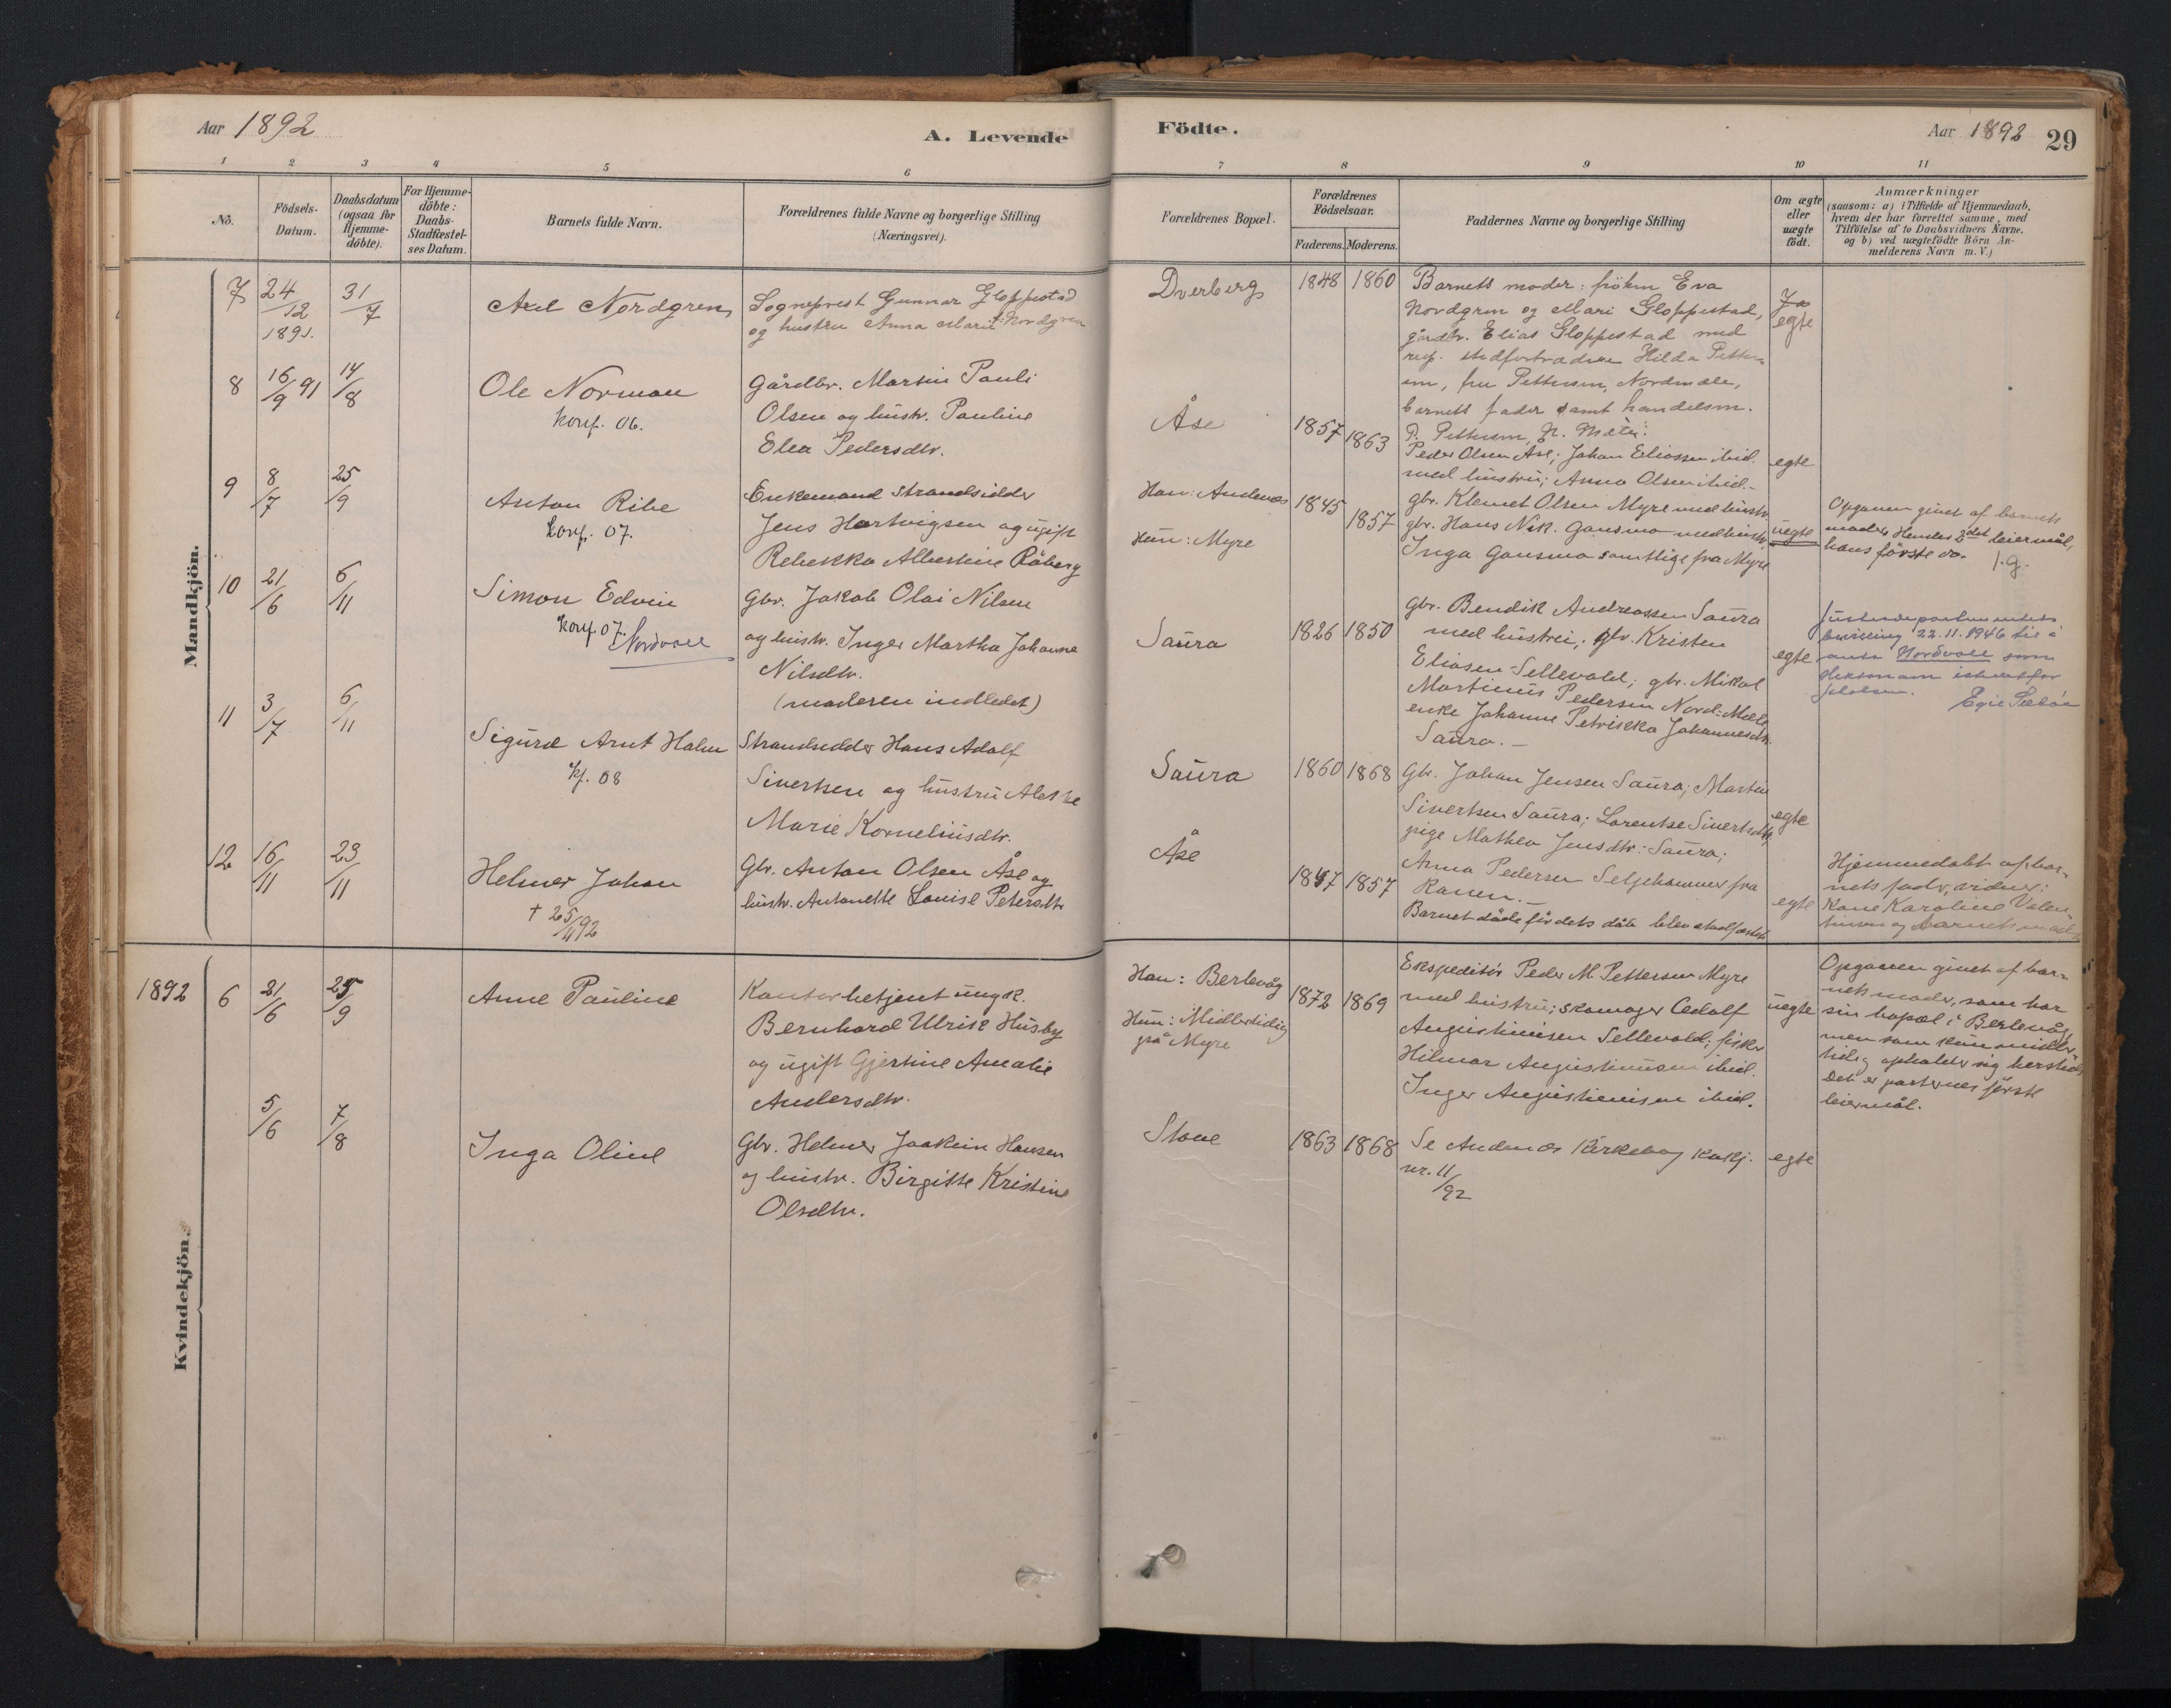 Aar 1892
A. Levende
1 2 3 4 5 6
No.
Födsels-
Datum.
Daabsdatum
(ogsaa for
Hjemme-
döbte).
For Hjemme-
döbte:
Daabs-
Stadfæstel-
ses Datum.
Barnets fulde Navn.
Forældrenes fulde Navne og borgerlige Stilling
(Næringsvei).
Mandkjön.
7 24/12 1891. 31/7
Axel Nordgren
Sogneprest Gunnar Gloppestad
og hustru Anna Marie f: Nordgren
8 16/9 91 14/8
Ole Norman
konf. 06.
Gårdbr. Martin Pauli
Olsen og hustr. Pauline
Elea Pedersdtr.
9 8/7 25/9
Anton Ribe
konf. 07.
Enkemand strandsidder
Jens Hartvigsen og ugift
Rebekka Albertine Råberg
10 21/6 6/11
Simon Edvin
konf. 07.
Nordvoll
Gbr. Jakob Olai Nilsen
og hustr. Inger Martha Johanne
Nilsdtr.
(moderen indledet)
11 3/7 6/11
Sigurd Arnt Holm
kf. 08
Strandsidder Hans Adolf
Sivertsen og hustru Alette
Marie Korneliusdtr.
12 16/11 23/11
Helmer Johan
† 25/11 92
Gbr. Anton Olsen Åse og
hustr. Antonette Louise Petersdtr
Kvindekjön.
1892 6 21/6 25/9
Anne Pauline
Kontorbetjent ungk.
Bernhard Ulrik Husby
og ugift Gjertine Amalie
Andersdtr.
5/6 7/8
Inga Oline
Gbr. Helmer Joakim Hansen
og hustr. Birgitte Kristine
Olsdtr.
Födte.
Aar 1892 29
7 8 9 10 11
Forældrenes Bopæl.
Forældrenes
Födselsaar.
Faderens. Moderens.
Faddernes Navne og borgerlige Stilling
Om ægte
eller
uægte
födt.
Anmærkninger
(saasom: a) i Tilfælde af Hjemmedaab,
hvem der har forrettet samme, med
Tilföielse af to Daabsvidners Navne,
og b) ved uægtefödte Börn An-
melderens Navn m. V.)
Dverberg 1848 1860
Barnets moder: frökn Eva
Nordgren og Mari Gloppestad,
gårdbr. Elias Gloppestad med
resp. stedfortrædere Hilda Petter-
sen, fru Pettersen, Nordmæle,
barnets fader samt handelsm.
P. Pettersen, N. Mæle.
Ja
egte
Åse 1857 1863
Peder Olsen Åse; Johan Eliassen ibid.
med hustru; Anna Olsen ibid.-
egte
Han: Andenæs
Hun: Myre
1845 1857
gbr. Klemet Olsen Myre med hustr.
gbr. Hans Nik. Gansmo med hustr,
Inga Gansmo samtlige fra Myre
uegte
Opgaven givet af barnets
moder. Hendes 2det leiermål,
hans förste do.
Saura 1826 1850
Gbr. Bendik Andreassen Saura
med hustru; gbr. Kristen
Eliasen Sellevold; gbr. Mikal
Martinus Pedersen Nord: Mæle
enke Johanne Petrikka Johannesdtr.
Saura.-
egte
Justisdepartementets
bevilling 22.11.1946 til å
anta Nordvoll som
slektsnavn istedenfor
Saura 1860 1868
Gbr. Johan Jensen Saura; Martin
Sivertsen Saura; Lorentse Sivertsdtr;
pige Mathea Jensdtr: Saura;
egte
Åse 1847 1857
Anna Pedersen Seljehammer fra
Ranen.-
Barnet döde för dets dåb blev stadfæstet
egte
Hjemmedöbt af bar-
nets fader, vidner:
Kone Karoline Valen-
tinsen og barnets moder
Han: Berlevåg
Hun: Midlertidig
på Myre
1872 1869
Ekspeditör Peder M. Pettersen Myre
med hustru; skomager Adolf
Angustinusen Sellevold; fisker
Hilmar Angustinusen ibid.
Inger Angustinusen ibid.
uegte
Opgaven givet af bar-
nets moder, som har
sin bopæl i Berlevåg,
men som kun midler-
tidig opholder sig hersteds
Det er parternes förste
leiermål.
Stave 1863 1868
Se Andenæs Kirkebog Kvkj.
nr. 11/92
egte